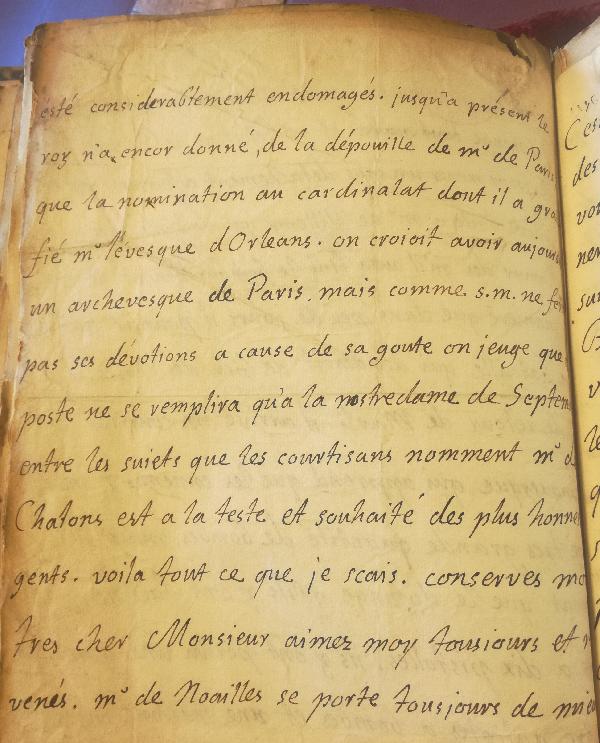 esté considerablement endomagés. jusqu'a présent le
roy n'a encor donné, de la dépouille de mr de Paris
que la nomination au cardinalat dont il a gra
fié mr l'évesque d'Orleans. on croioit avoir aujour
un archevesque de Paris. mais comme s.m. ne fe
pas ses dévotions a cause de sa goute on jeuge que
poste ne se remplira qu'a la nostredame de Septem
entre les suiets que les courtisans nomment mr d
Chalons est a la teste et souhaité des plus honne
gents. voila tout ce que je scais. conserves mo
tres cher Monsieur aimez moy tousiours et
venés. mr de Noailles se porte tousjours de mie